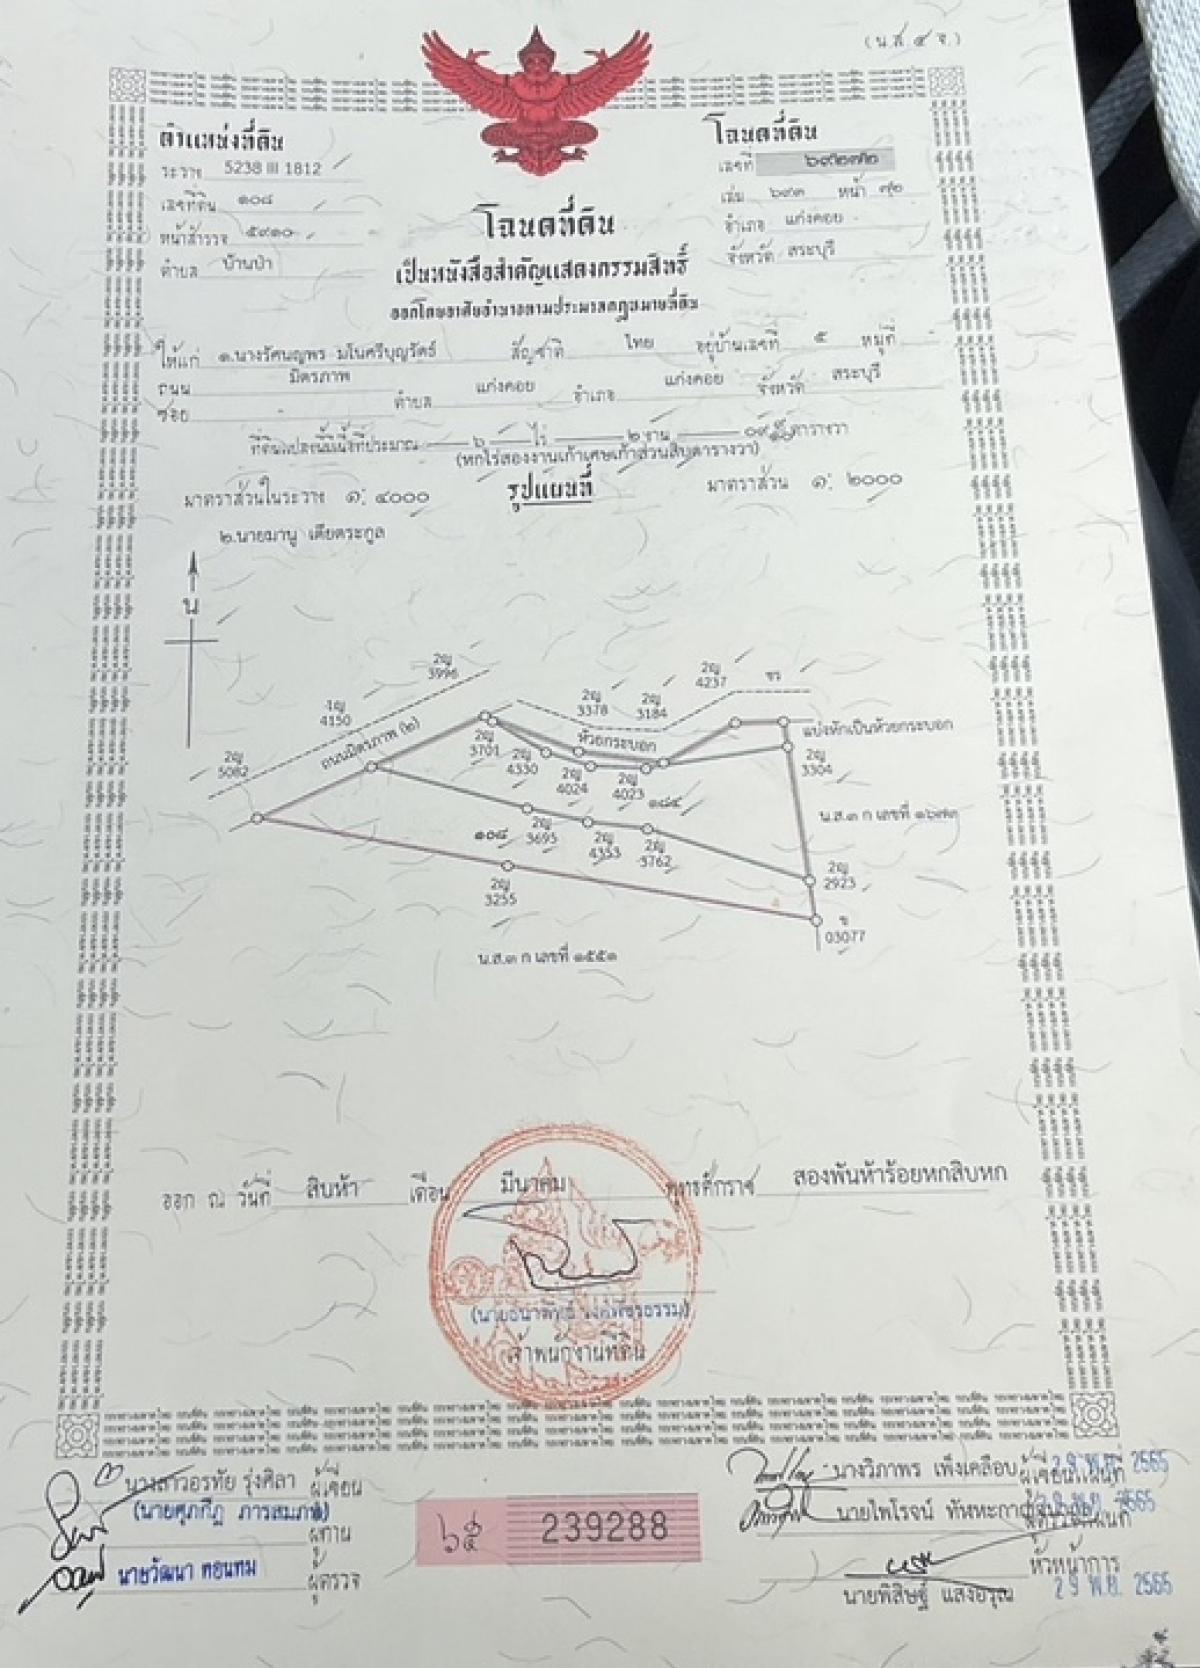 (น.ส.๔ จ.)
ตำแหน่งที่ดิน
ระวาง 5238 III 1812
เลขที่ดิน ๑๐๘
หน้าสำรวจ ๕๙๑๐
ตำบล บ้านป่า
โฉนดที่ดิน
เลขที่ ๖๙๒๓๒
เล่ม ๖๙๓ หน้า ๓๒
อำเภอ แก่งคอย
จังหวัด สระบุรี
โฉนดที่ดิน
เป็นหนังสือสำคัญแสดงกรรมสิทธิ์
ออกโดยอาศัยอำนาจตามประมวลกฎหมายที่ดิน
ให้แก่ ๑.นางรัศนญพร มโนศรีบุญรัตธ์ สัญชาติ ไทย อยู่บ้านเลขที่ ๕ หมู่ที่
ถนน มิตรภาพ ตำบล แก่งคอย อำเภอ แก่งคอย จังหวัด สระบุรี
ซอย
ที่ดินแปลงนี้มีเนื้อที่ประมาณ ๖ ไร่ ๒ งาน ตารางวา
(หกไร่สองงานเก้าเศษเก้าส่วนสิบตารางวา)
มาตราส่วนในระวาง ๑: ๔๐๐๐ รูปแผนที่ มาตราส่วน ๑: ๒๐๐๐
๒.นายมานู เตียตระกูล
น
2ญ 3996
1ญ 4150
2ญ 5082
ถนนมิตรภาพ (๒)
2ญ 4237
2ญ 3378
2ญ 3184
ห้วยกระบอก
แบ่งหักเป็นห้วยกระบอก
2ญ 3701
2ญ 4330
2ญ 4024
2ญ 4023
2ญ 3304
๑๘๔
น.ส.๓ ก เลขที่ ๑๖๗๓
๑๐๘
2ญ 3695
2ญ 4353
2ญ 3762
2ญ 2923
2ญ 3255
ข 03077
น.ส.๓ ก เลขที่ ๑๕๕๑
ออก ณ วันที่ สิบห้า เดือน มีนาคม พุทธศักราช สองพันห้าร้อยหกสิบหก
เจ้าพนักงานที่ดิน
นางสาวอรทัย รุ่งศิลา ผู้เขียน
(นายศุภกีฏ ภารสมภพ) ผู้ทาน
นายวัฒนา ตอนทม ผู้ตรวจ
๖๕ 239288
นางวิภาพร เพ็งเคลือบ ผู้เขียนแผนที่ 29 พ.ย. 2565
นายไพโรจน์ 2565
หัวหน้าการ
นายพิสิษฐ์ แสงอรุณ 29 พ.ย. 2565